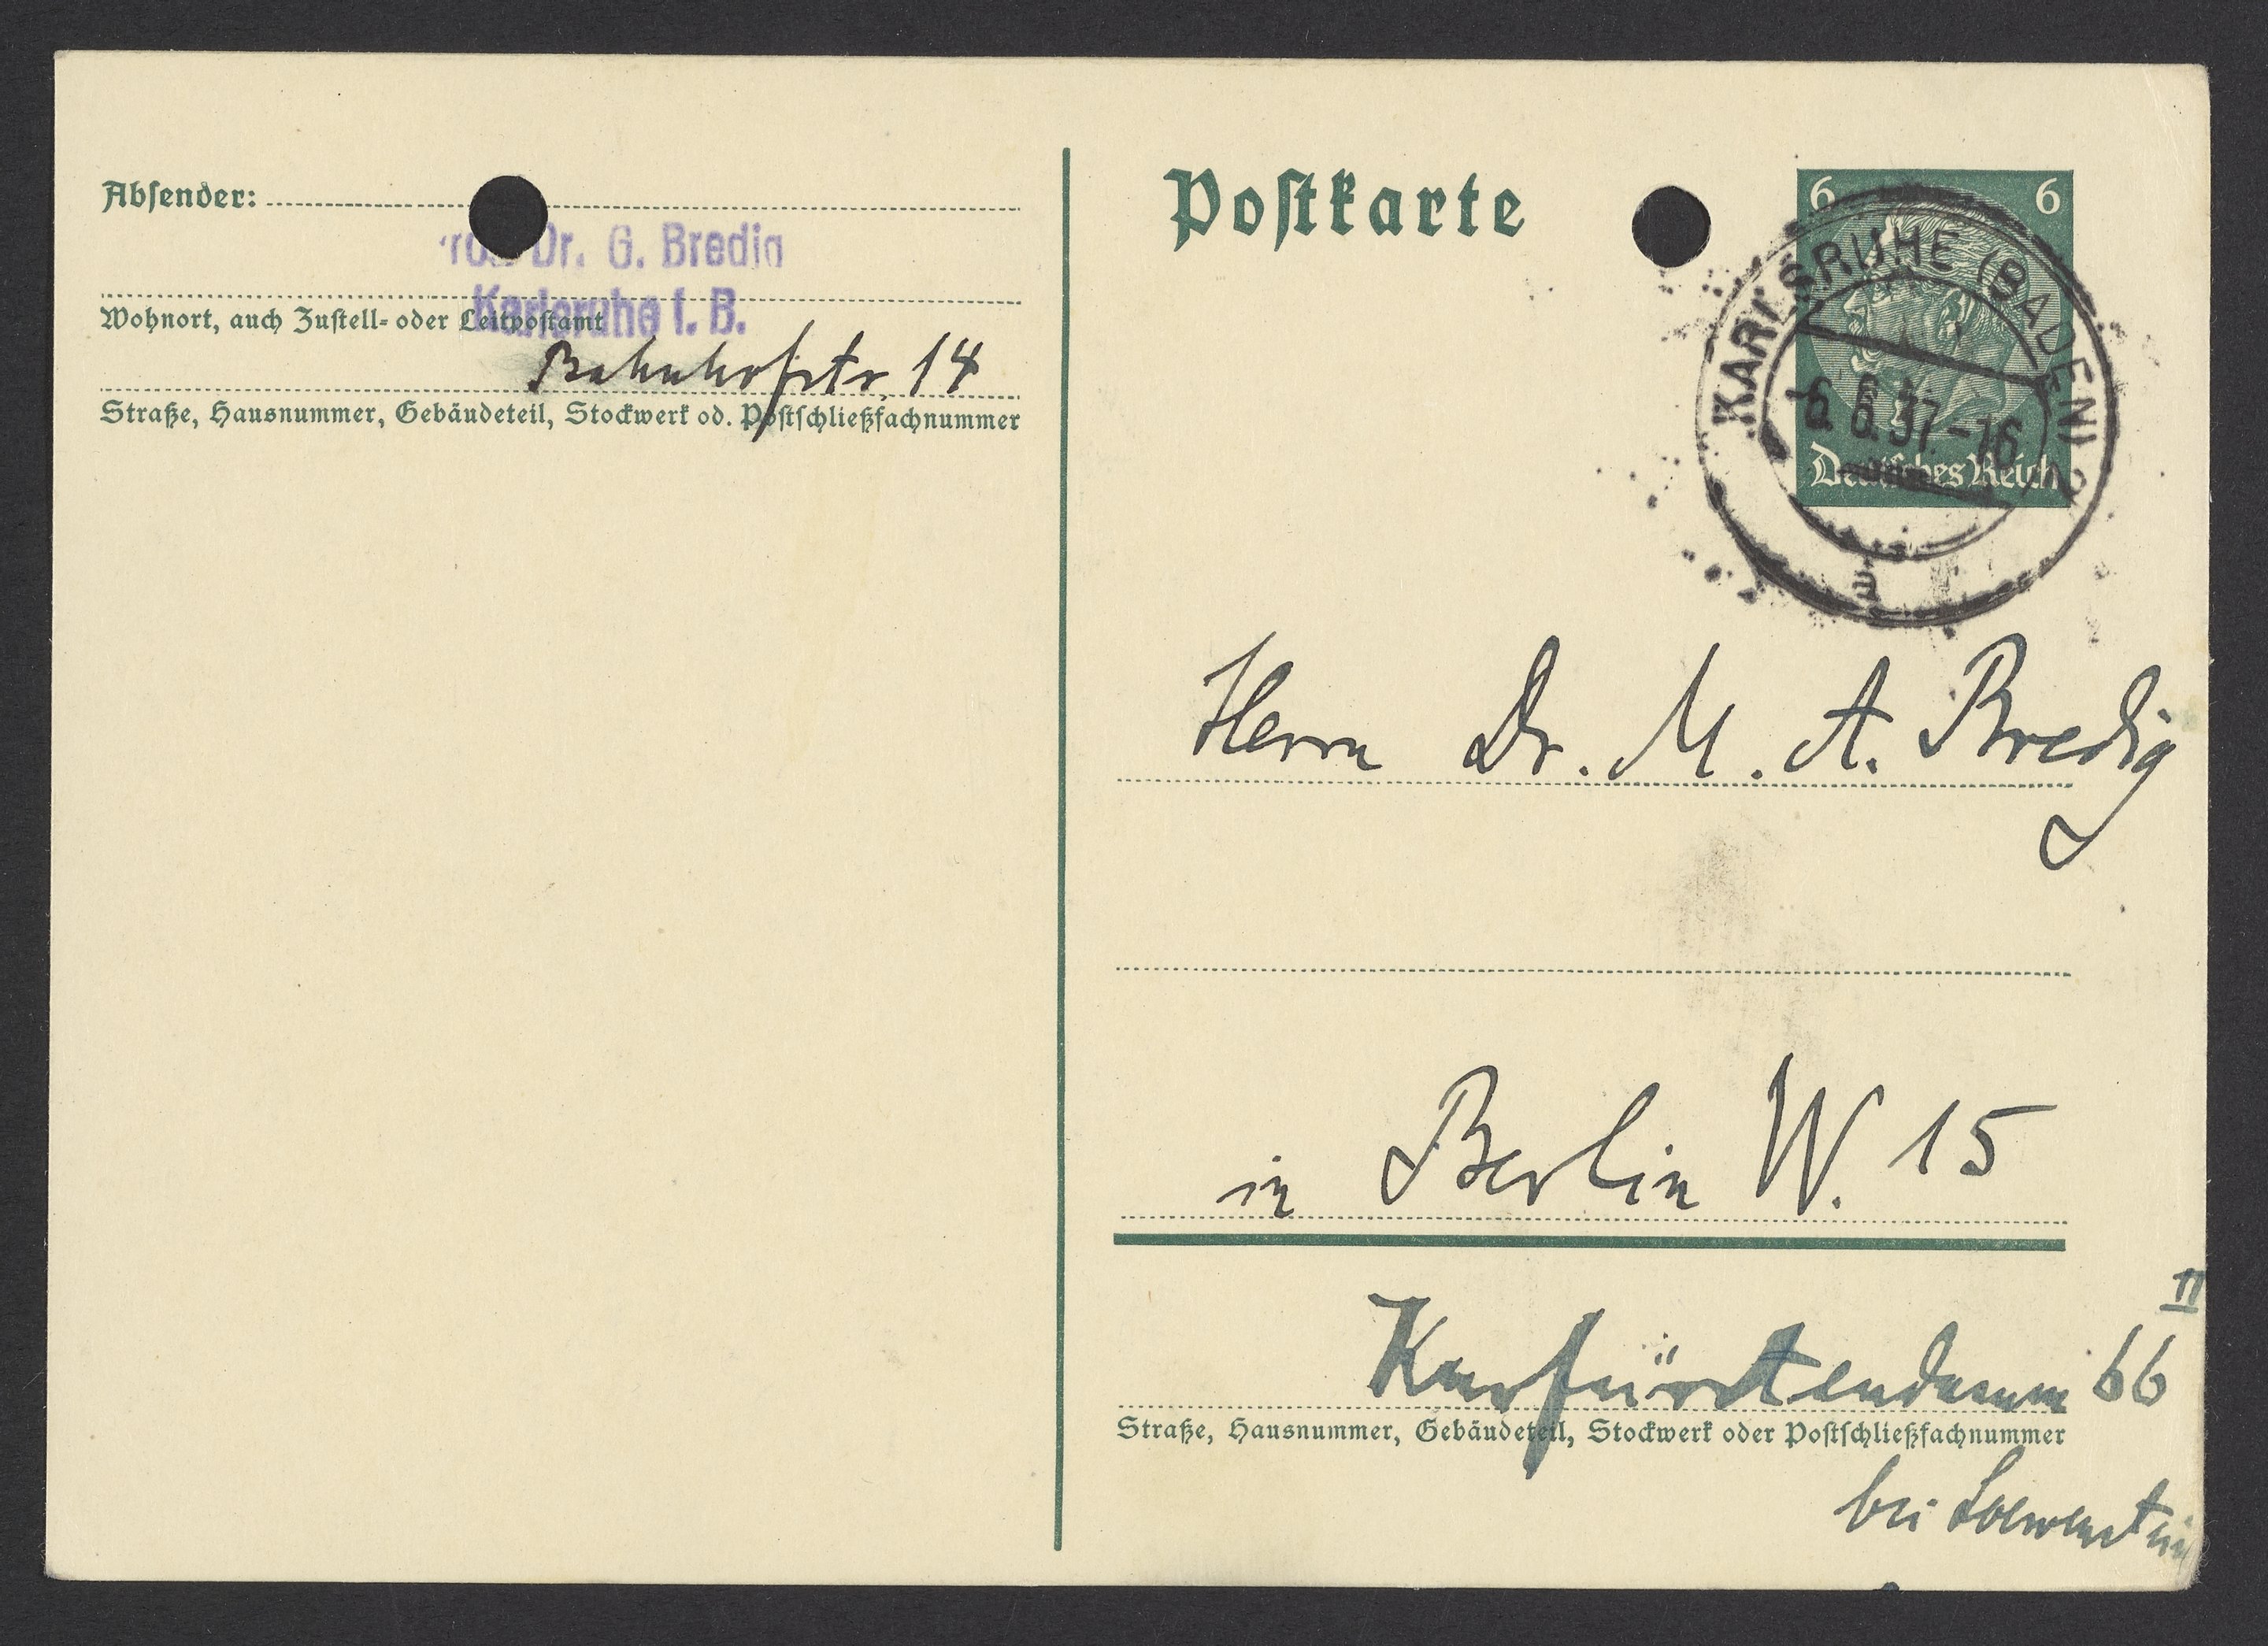 Absender:
Prof. Dr. G. Bredig
Karlsruhe i. B.
Wohnort, auch Zustell- oder Leitpostamt
Bahnhofstr. 14
Straße, Hausnummer, Gebäudeteil, Stockwerk od. Postschließfachnummer
Postkarte
6 6
Deutsches Reich
KARLSRUHE (BADEN) 2
-6.6.37-16
a
Herrn Dr. M. A. Bredig
in Berlin W. 15
II
Kurfürstendamm 66
Straße, Hausnummer, Gebäudeteil, Stockwerk oder Postschließfachnummer
bei Loewenstein